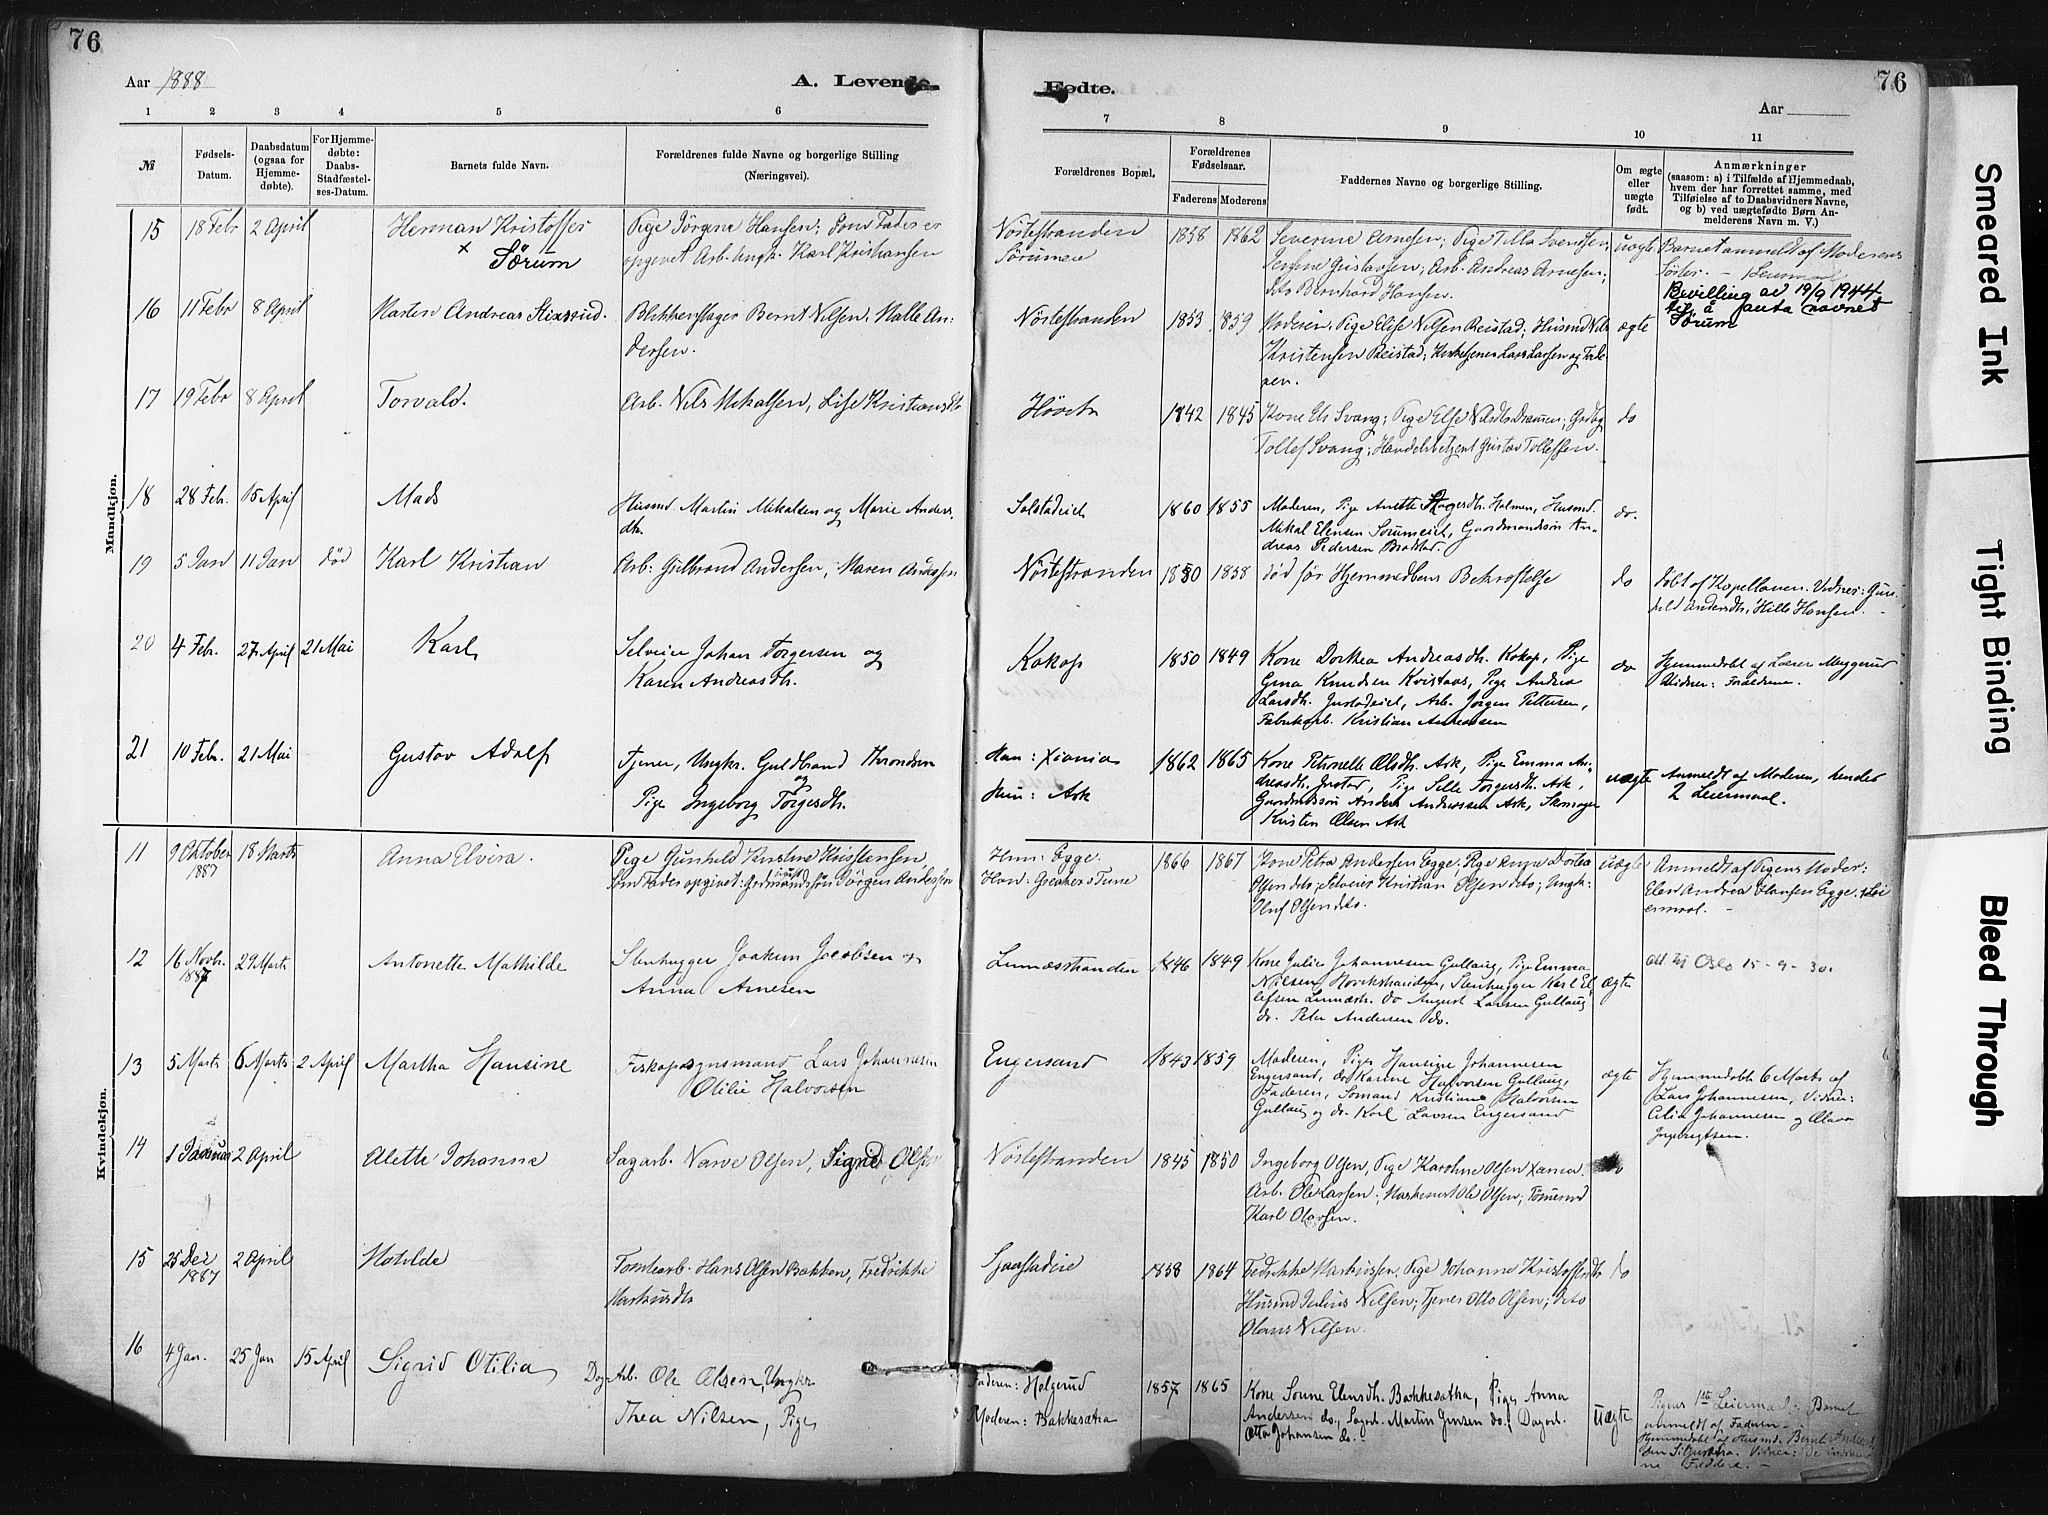 76
Aar 1888
A. Levende
1 2 3 4 5 6
№
Fødsels-Datum.
Daabsdatum (ogsaa for Hjemme-døbte).
For Hjemme-døbte: Daabs-Stadfæstel-ses-Datum.
Barnets fulde Navn.
Forældrenes fulde Navne og borgerlige Stilling
(Næringsvei).
Mandkjøn.
15 18 Febr 2 April Herman Kristoffer Pige Jørgene Hansen; som Fader er
x Sørum opgivet Arb. Ungk. Karl Kristiansen
16 11 Febr 8 April Marten Andreas Blikkenslager Bernt Nilsen, Malle An-
dersen.
17 19 Febr 8 April Torvald. Arb. Nils Mikalsen, Lise Kristiansdt
18 28 Feb. 15 April Mads Husmd. Martin Mikalsen og Marie Anders-
dtr.
19 5 Jan 11 Jan død Karl Kristian Arb. Gulbrand Andersen, Maren Andersen
20 4 Feb. 27 April 21 Mai Karl Selveier Johan Torgersen og
Karen Andreasdt.
21 10 Feb. 21 Mai Gustav Adolf Tjener, Ungkr. Guldbrand Throndsen
og
Pige Ingeborg Torgersdt.
Kvindekjøn.
11 9 Oktober 1887 18 Marts Anna Elvira. Pige Gunhild Kristine Kristensen
som Fader opgivet: Grdmandssøn Jørgen Andersen
12 16 Novb. 1887 29 Marts Antonette Mathilde Stenhugger Joakim Jacobsen og
Anna Arnesen
13 5 Marts 6 Marts 2 April Martha Hansine Lars Johannesen
Otilie Halvorsen
14 1 Januar 2 April Alette Johanne Sagarb. Narve Olsen, Sigrid Olsen
15 25 Dec 1887 2 April Matilde Tomtearb. Hans Olsen Bakken, Fredrikke
Markusdtr
16 4 Jan. 25 Jan 15 April Sigrid Otilia Dag Arb. Ole Olsen, Ungkr
Thea Nilsen, Pige
Fødte.
76
Aar
7 8 9 10 11
Forældrenes Bopæl.
Forældrenes Fødselsaar.
Faderens Moderens
Faddernes Navne og borgerlige Stilling.
Om ægte eller uægte født.
Anmærkninger
(saasom: a) i Tilfælde af Hjemmedaab,
hvem der har forrettet samme, med
Tilføielse af to Daabsvidners Navne,
og b) ved uægtefødte Børn An-
melderens Navn m. V.)
Nøstestranden 1858 1862 Severine Arnesen; Pige Tilla Svendsen; uægte Barnet anmeldt af Moderens
Sørumeie Gustavsen; Arb. Andreas Arnesen; Søster. -
dito Bernhard Hansen.
Bevilling av 19/9 1944
til å anta navnet
Sørum
Nøstestranden 1853 1859 Moderen, Pige Elise Nilsen Reistad; Husmd Nils ægte
Kristensen Reistad; Kirketjener Lars Larsen og Fade-
ren.
1842 1845 Kone Svang; Pige Else Drammen;
Tollef Svang; Handelsbetjent Gustav Tollefsen. do
Solstadeiet 1860 1855 Moderen, Pige Anette Holmen, Husmd.
Mikal Elensen Sørumeiet, Gaardmandssøn An-
dreas Pedersen do.
Nøstestranden 1850 1858 død før Hjemmedbens Bekræftelse do døbt af Kapellanen. Vidner: Gun-
hild Andersdt, Hille Hansen.
Kokop 1850 1849 Kone Dorthea Andreasdt. Kokop, Pige do Hjemmedøbt af Lærer Myggerud
Gina Knudsen, Pige Andrea Vidner: Forældrene.
Larsdt. Justadeiet, Arb. Jørgen Pettersen,
Fabrikarb. Kristian Andreassen
Han: Xiania 1862 1865 Kone Petronelle Olsdt. Ask, Pige Emma An- uægte Anmeldt af Moderen, hendes
Hun: Ask dreasdt. Pige Torgersdt. Ask, 2 Leiermaal.
Gaardmdssøn Anders Andreassen Ask, Skomager
Kristin Olsen Ask
Hun: Egge. 1866 1867 Kone Petra Andersen Egge; Pige Anna Dortea uægte Anmeldt af Pigens Moder:
Han: Greaker i Tune Olsen dito; Selveier Kristian Olsen dito; Ungk. Elen Andrea Hansen Egge. 1 Lei
Oluf Olsen dito. ermaal. -
Linnæsstranden 1846 1849 Kone Julie Johannesen Gullaug, Pige Emma Oslo 15-9-30.
Nilsen, Stenhugger Karl El-
lefsen Linnæstr. do August Larsen Gullaug ægte
do. Peter Andersen do.
Engersand 1843 1859 Moderen, Pige Hansine Johannesen
Engersand, do Karine Halvorsen Gullaug, ægte Hjemmedøbt 6 Marts af
Faderen, Sømand Kristian Halvorsen Lars Johannesen, Vidner:
Gullaug og do. Karl Larsen Engersand Johannesen og Olava
Ingebrigtsen.
Nøstestranden 1845 1850 Ingeborg Olsen, Pige Karoline Olsen Xania do
Arb. Ole Larsen; Ole Olsen;
Karl Olavsen.
Sjaastadeie 1858 1864 Fredrikke Markussen, Pige Johanne Kristoffersdtr do
Husmd Julius Nilsen; Tjener Otto Olsen; dito
Olaus Nilsen.
Faderen: Holgerud 1857 1865 Kone Elensdt. Bakkesætra, Pige Anna Pigens 1ste Leiermaal. Barnet
Moderen: Bakkesætra Andersen do., Sagarb. Martin Jensen do., Dagarb. Uægte anmeldt af Faderen -
Otto Johansen do. - Hjemmedøbt af Husmd. Bernt
Vidner:
Smeared Ink
Tight Binding
Bleed Through